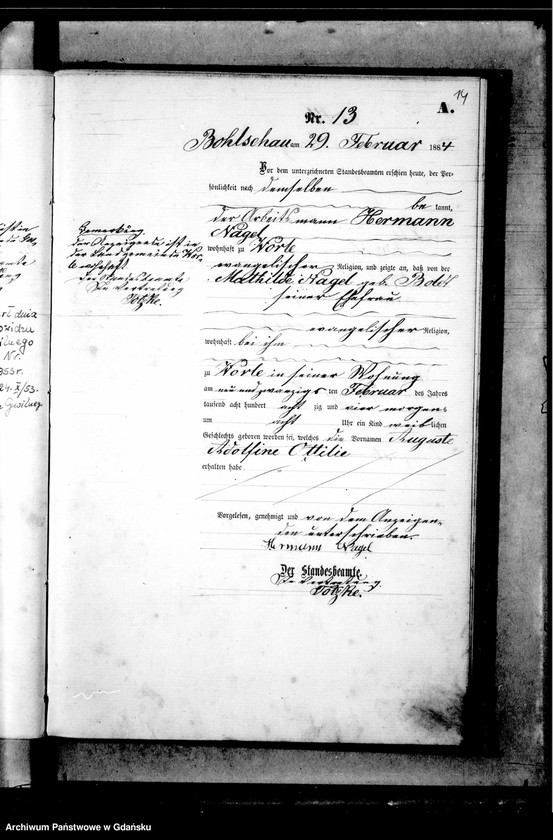 14
A.
Nr. 13
Bohlschau am 29. Februar 1884
Vor dem unterzeichneten Standesbeamten erschien heute, der Per-
sönlichkeit nach demselben
be kannt,
der Arbeitsmann Hermann
Nagel
wohnhaft zu Worle
evangelischer Religion, und zeigte an, daß von der
Mathilde Nagel geb. Boldt
seiner Ehefrau
evangelischer Religion,
wohnhaft bei ihm
zu Worle in seiner Wohnung
am neun und zwanzigsten Februar des Jahres
tausend acht hundert acht zig und vier morgens
um acht Uhr ein Kind weib lichen
Geschlechts geboren worden sei, welches die Vornamen Auguste
Adolfine Ottilie
erhalten habe
Vorgelesen, genehmigt und von dem Anzeigen-
den unterschrieben.
Hermann Nagel
Der Standesbeamte.
In Vertretung
Bemerkung.
der Anzeigende ist in
der Landgemeinde Wor-
le wohnhaft.
Der Standesbeamte
In Vertretung
dnia
Nr.
953r.
24. X/53.
Archiwum Państwowe w Gdańsku